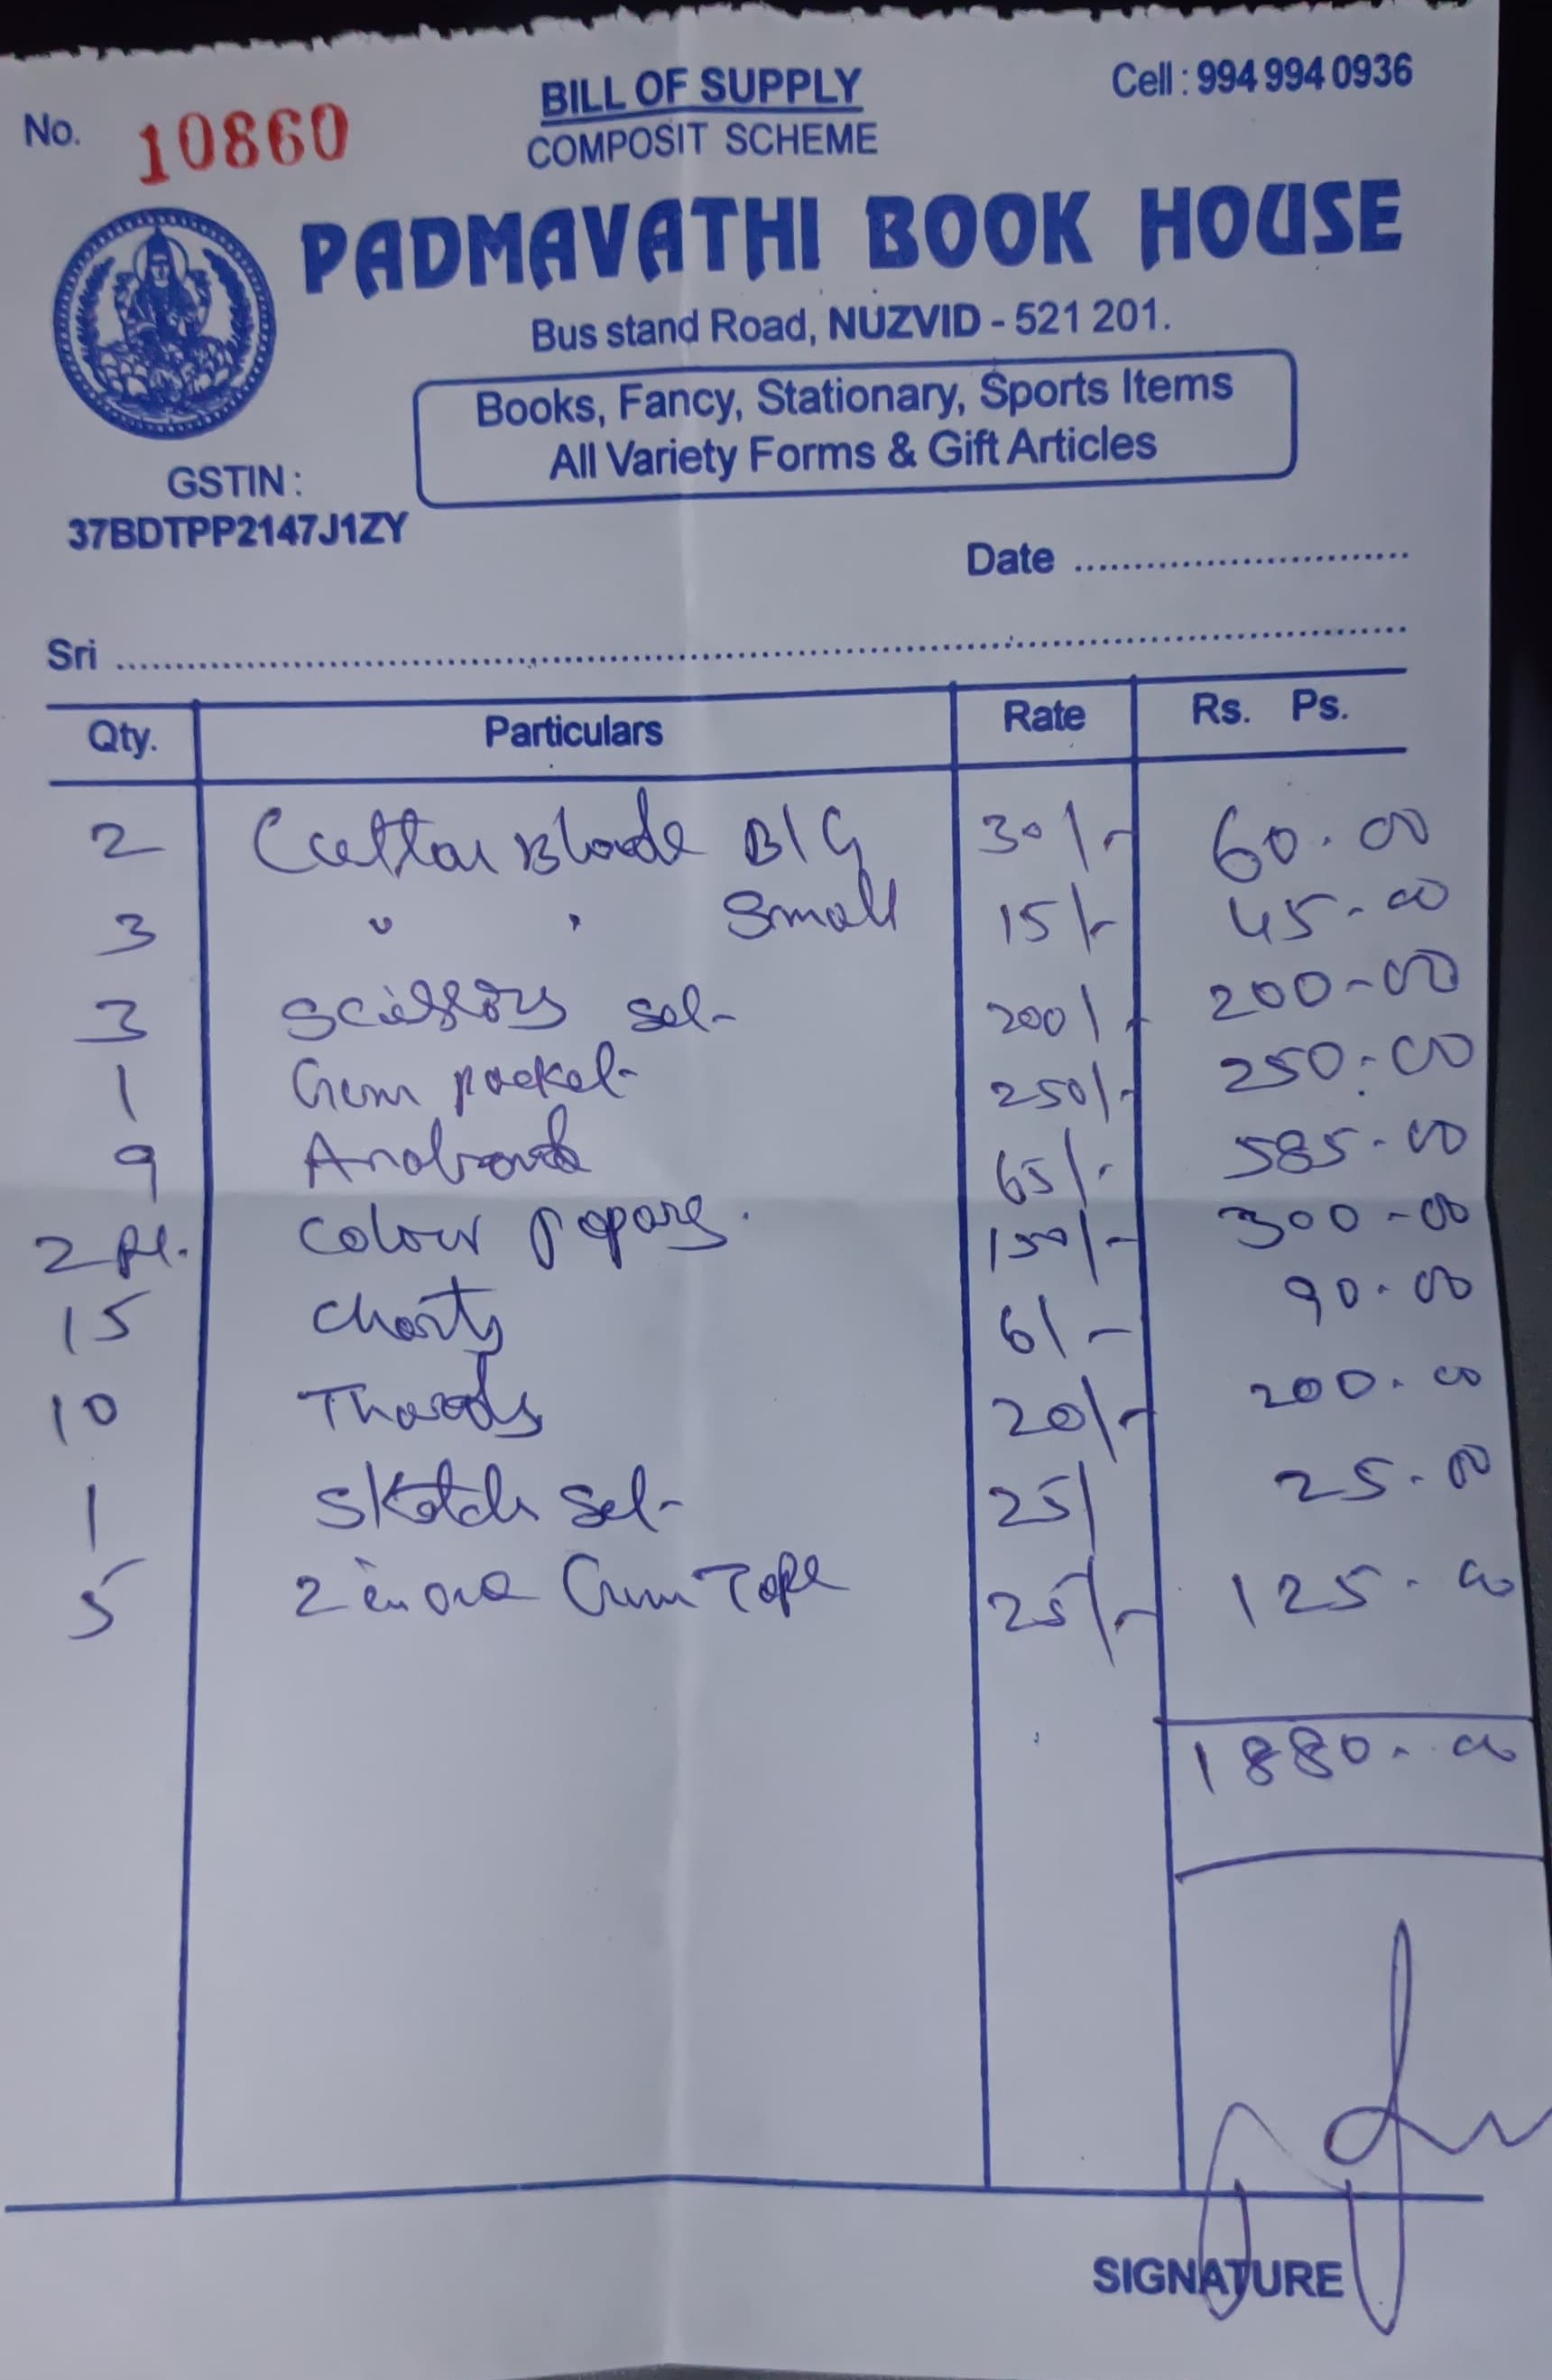 No. 10860
BILL OF SUPPLY
COMPOSIT SCHEME
Cell : 994 994 0936
PADMAVATHI BOOK HOUSE
Bus stand Road, NUZVID - 521 201.
Books, Fancy, Stationary, Sports Items
All Variety Forms & Gift Articles
GSTIN :
37BDTPP2147J1ZY
Date
Sri
Qty. Particulars Rate Rs. Ps.
2 Cuttar Blade BIG 30/- 60.00
3 " " Small 15/- 45-00
3 Scissors set 200/- 200-00
1 Gum packet 250/- 250-00
9 65/- 585-00
2 Colour papars. 150/- 300-00
15 Charts 6/- 90-00
10 Thareds 20/- 200-00
1 Sketch set 25/ 25-00
5 2 inch Gum Tape 25/- 125-00
1880-00
SIGNATURE